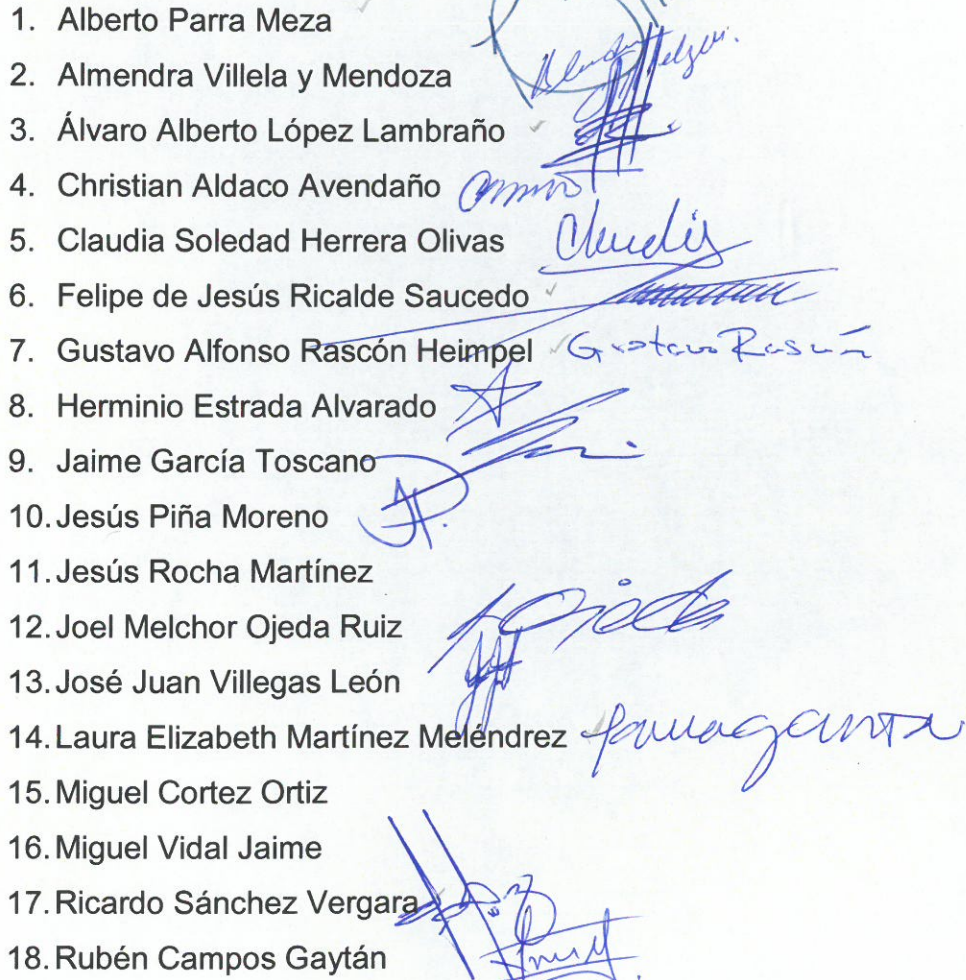 1. Alberto Parra Meza
2. Almendra Villela y Mendoza
3. Álvaro Alberto López Lambraño
4. Christian Aldaco Avendaño
5. Claudia Soledad Herrera Olivas Claudia
6. Felipe de Jesús Ricalde Saucedo
7. Gustavo Alfonso Rascón Heimpel Gustavo Rascón
8. Herminio Estrada Alvarado
9. Jaime García Toscano
10. Jesús Piña Moreno
11. Jesús Rocha Martínez
12. Joel Melchor Ojeda Ruiz Ojeda
13. José Juan Villegas León
14. Laura Elizabeth Martínez Meléndrez
15. Miguel Cortez Ortiz
16. Miguel Vidal Jaime
17. Ricardo Sánchez Vergara
18. Rubén Campos Gaytán